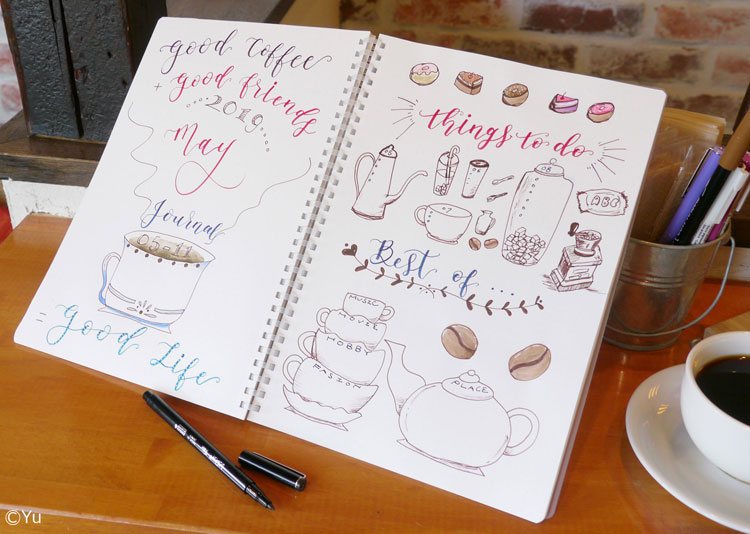 good Coffee
+ good friends
2019
May
Journal
05-11
= good Life
things to do
08
ABC
Best of...
MUSIC
MOVEL
HOBBY
FASION
PLACE
©Yu